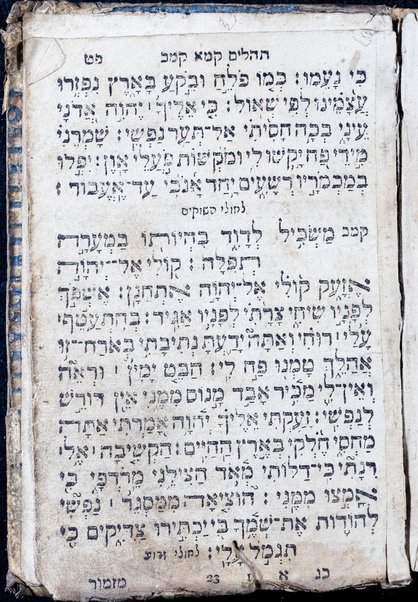 תהלים קמא קמב מט
כִּי נָעֵמוּ: כְּמוֹ פֹלֵחַ וּבֹקֵעַ בָּאָרֶץ נִפְזְרוּ
עֲצָמֵינוּ לְפִי שְׁאוֹל: כִּי אֵלֶיךָ יְהוִה אֲדֹנָי
עֵינָי בְּכָה חָסִיתִי אַל־תְּעַר נַפְשִׁי: שָׁמְרֵנִי
מִידֵי פַח יָקְשׁוּ לִי וּמֹקְשׁוֹת פֹּעֲלֵי אָוֶן: יִפְּלוּ
בְמַכְמֹרָיו רְשָׁעִים יַחַד אָנֹכִי עַד־אֶעֱבוֹר:
לחולי השוקים
קמב מַשְׂכִּיל לְדָוִד בִּהְיוֹתוֹ בַמְּעָרָה
תְפִלָּה: קוֹלִי אֶל־יְהוָה
אֶזְעָק קוֹלִי אֶל־יְהוָה אֶתְחַנָּן: אֶשְׁפֹּךְ
לְפָנָיו שִׂיחִי צָרָתִי לְפָנָיו אַגִּיד: בְּהִתְעַטֵּף
עָלַי רוּחִי וְאַתָּה יָדַעְתָּ נְתִיבָתִי בְּאֹרַח־זוּ
אֲהַלֵּךְ טָמְנוּ פַח לִי: הַבֵּיט יָמִין וּרְאֵה
וְאֵין־לִי מַכִּיר אָבַד מָנוֹס מִמֶּנִּי אֵין דּוֹרֵשׁ
לְנַפְשִׁי: זָעַקְתִּי אֵלֶיךָ יְהוָה אָמַרְתִּי אַתָּה
מַחְסִי חֶלְקִי בְּאֶרֶץ הַחַיִּים: הַקְשִׁיבָה אֶל־
רִנָּתִי כִּי־דַלּוֹתִי מְאֹד הַצִּילֵנִי מֵרֹדְפַי כִּי
אָמְצוּ מִמֶּנִּי: הוֹצִיאָה מִמַּסְגֵּר נַפְשִׁי
לְהוֹדוֹת אֶת־שְׁמֶךָ בִּי יַכְתִּרוּ צַדִּיקִים כִּי
תִגְמֹל עָלָי: לחולי זרוע
כג א 1 23 מזמור